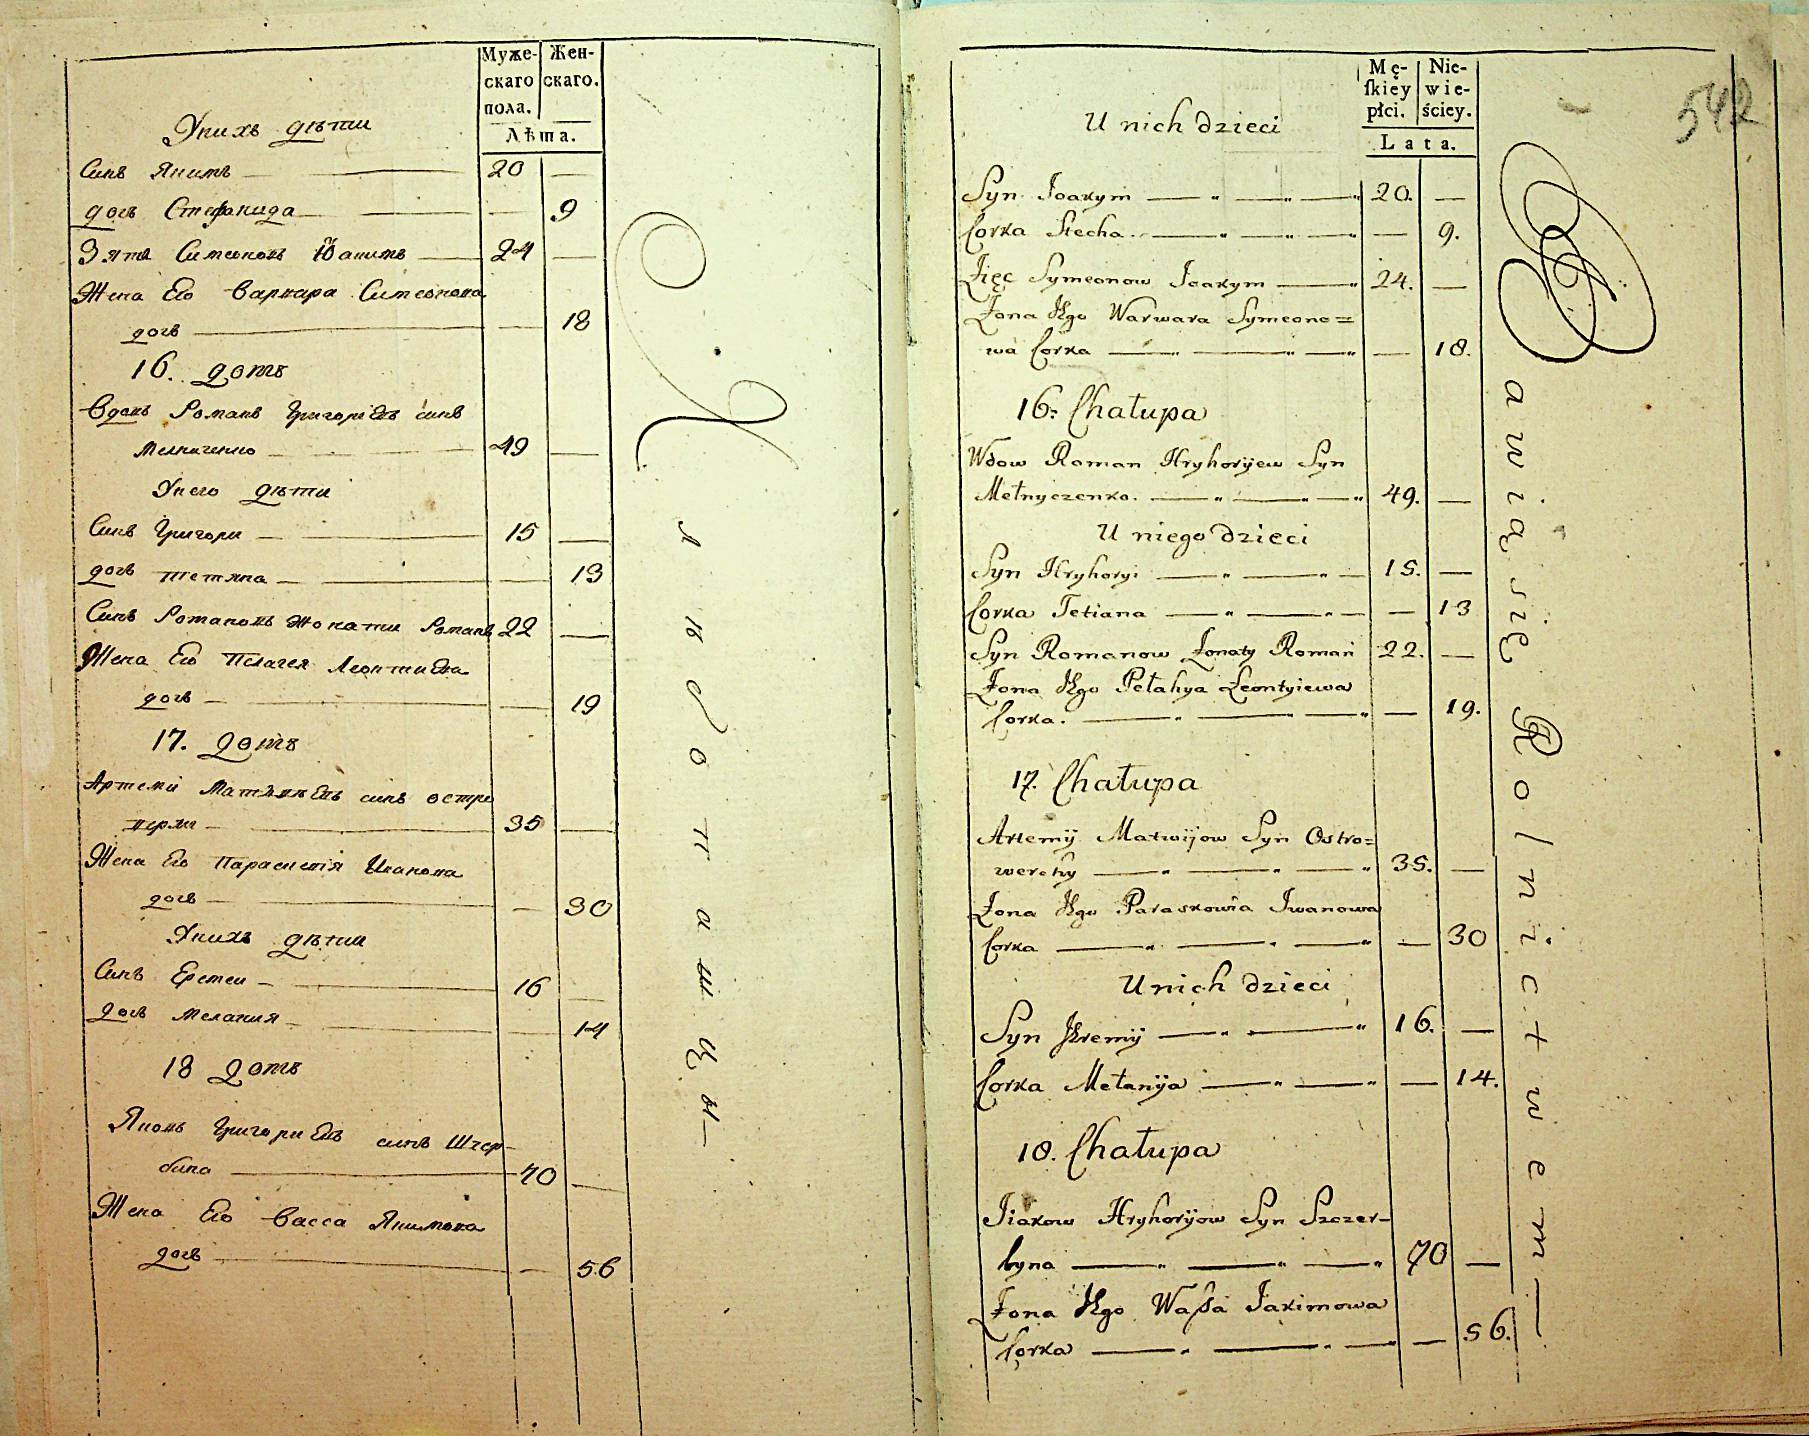 Муже-
скаго
пола.
Жен-
скаго.
Лѣта.
Унихъ дѣти
Синъ Якимъ 20
дочь Стефанида 9
Зять Симеоновъ Юакимъ 24
Жена Его Варвара Симеонова
дочь 18
16. домъ
Вдовъ Романъ Григоріевъ синъ
Мелниченко 49
Унего дѣти
Синъ Григори 15
дочь Тетяна 13
Синъ Романовъ Жонати Романъ 22
Жена Его Пелагея Леонтиева
дочь 19
17. домъ
Артемій Матвѣевъ синъ Остро
верхи 35
Жена Его Параскевія Иванова
дочь 30
Унихъ дѣти
Синъ Еремеи 16
дочь Мелания 14
18 домъ
Яковъ Григориевъ синъ Щер-
бина 70
Жена Его Васса Якимова
дочь 56
Хлѣбопашцы
542
Mę-
skiey
płci.
Nie-
wie-
ściey.
Lata.
U nich dzieci
Syn Joakym 20.
Corka Stecha 9.
Zięc Symeonow Joakym 24.
Zona Jego Warwara Symeono=
wa Corka 18.
16. Chałupa
Wdow Roman Hryhoryjew Syn
Mełnyczenko. 49.
U niego dzieci
Syn Hryhoryi 15.
Corka Tetiana 13
Syn Romanow Zonaty Roman 22.
Zona Jego Pełahya Leontyiewa
Corka. 19.
17. Chałupa
Artemij Matwijow Syn Ostro=
werchy 35.
Zona Jego Paraskowia Iwanowa
Corka 30
U nich dzieci
Syn Jeremij 16.
Corka Mełanija 14.
18. Chałupa
Jiakow Hryhoryjow Syn Szczer-
byna 70
Zona Jego Wassa Jakimowa
Corka 56.
Bawią się Rolnictwem